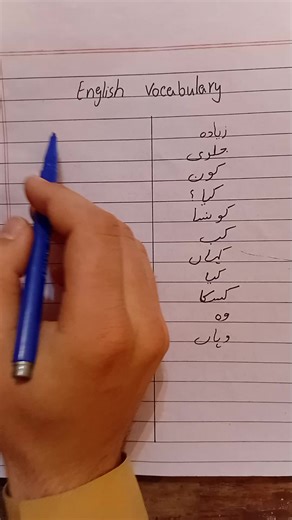 English Vocabulary
زیادہ
جلدی
کون
کیا ؟
کونسا
کب
کہاں
کیا
کسکا
وہ
وہاں